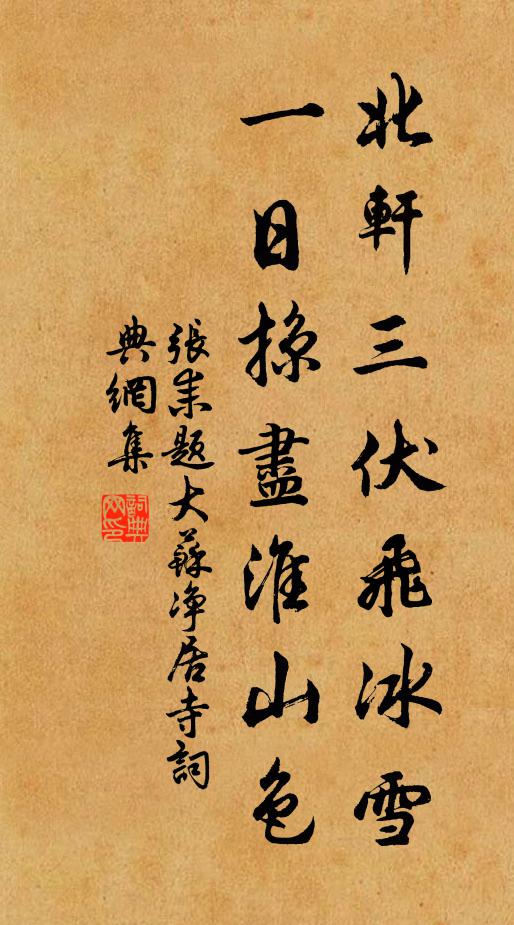 北軒三伏飛冰雪
一日掠盡淮山色
張耒題大蘇凈居寺詞
典網集
詞典網印